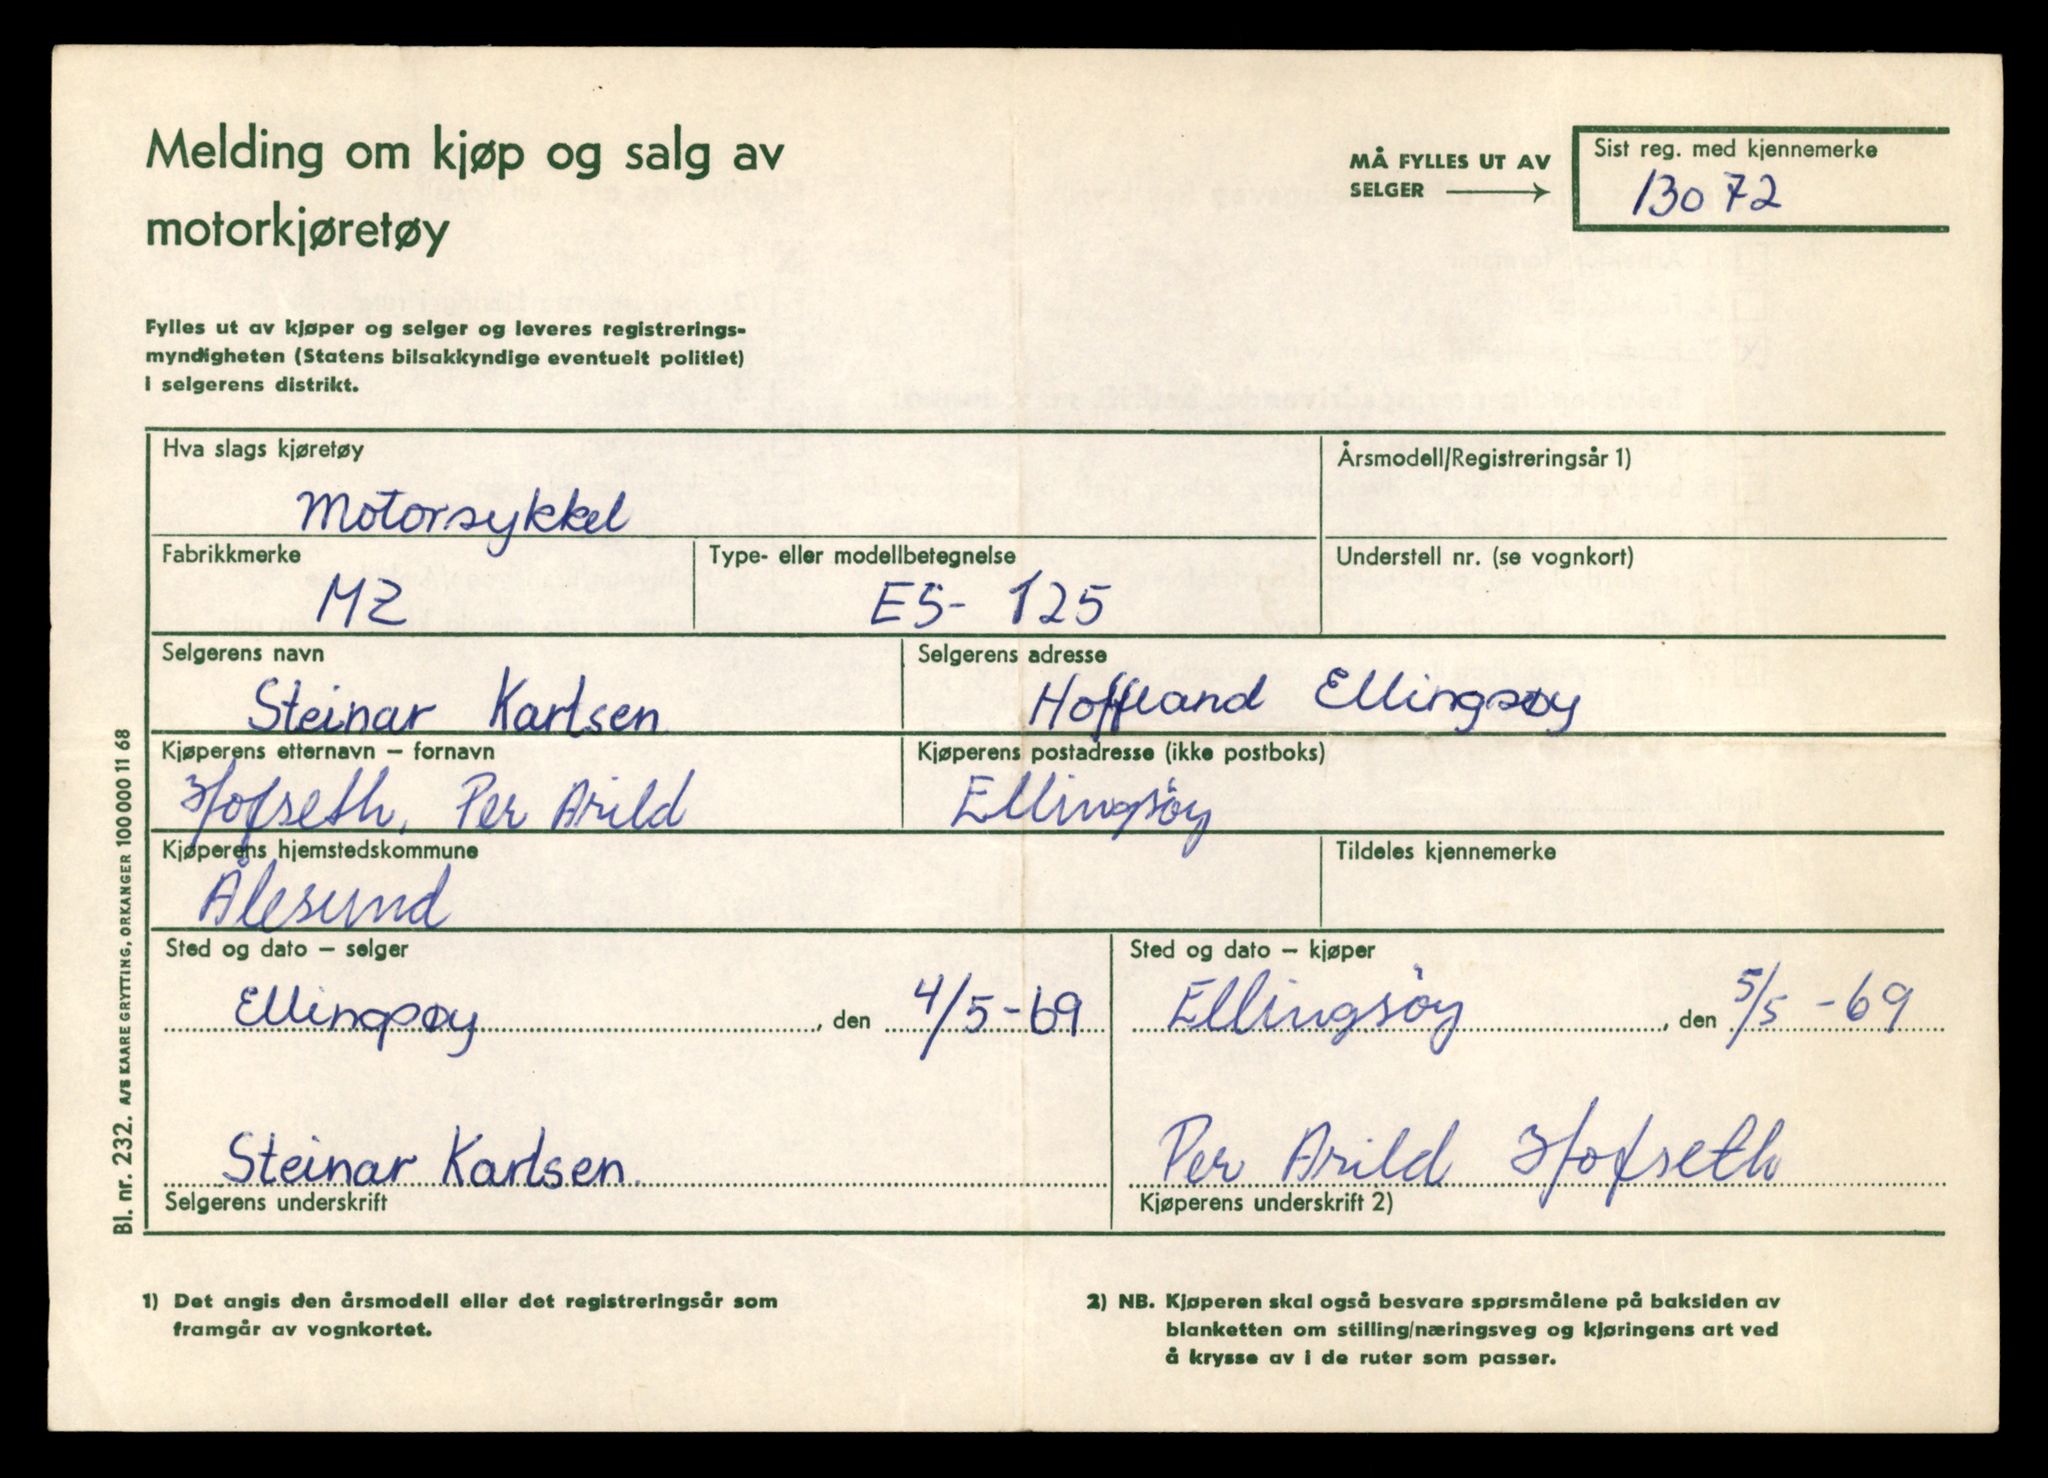 Melding om kjøp og salg av
motorkjøretøy
MÅ FYLLES UT AV
SELGER
Sist reg. med kjennemerke
13072
Fylles ut av kjøper og selger og leveres registrerings-
myndigheten (Statens bilsakkyndige eventuelt politiet)
i selgerens distrikt.
Hva slags kjøretøy
Motorsykkel
Årsmodell/Registreringsår 1)
Fabrikkmerke
MZ
Type- eller modellbetegnelse
ES- 125
Understell nr. (se vognkort)
Selgerens navn
Steinar Karlsen
Selgerens adresse
Hoffland Ellingsøy
Kjøperens etternavn – fornavn
Hofseth, Per Arild
Kjøperens postadresse (ikke postboks)
Ellingsöy
Kjøperens hjemstedskommune
Ålesund
Tildeles kjennemerke
Sted og dato – selger
Ellingsøy, den 4/5-69
Sted og dato – kjøper
Ellingsöy, den 5/5 -69
Steinar Karlsen
Selgerens underskrift
Per Arild Hofseth
Kjøperens underskrift 2)
Bl. nr. 232. A/S KAARE GRYTTING, ORKANGER 100 000 11 68
1) Det angis den årsmodell eller det registreringsår som
framgår av vognkortet.
2) NB. Kjøperen skal også besvare spørsmålene på baksiden av
blanketten om stilling/næringsveg og kjøringens art ved
å krysse av i de ruter som passer.